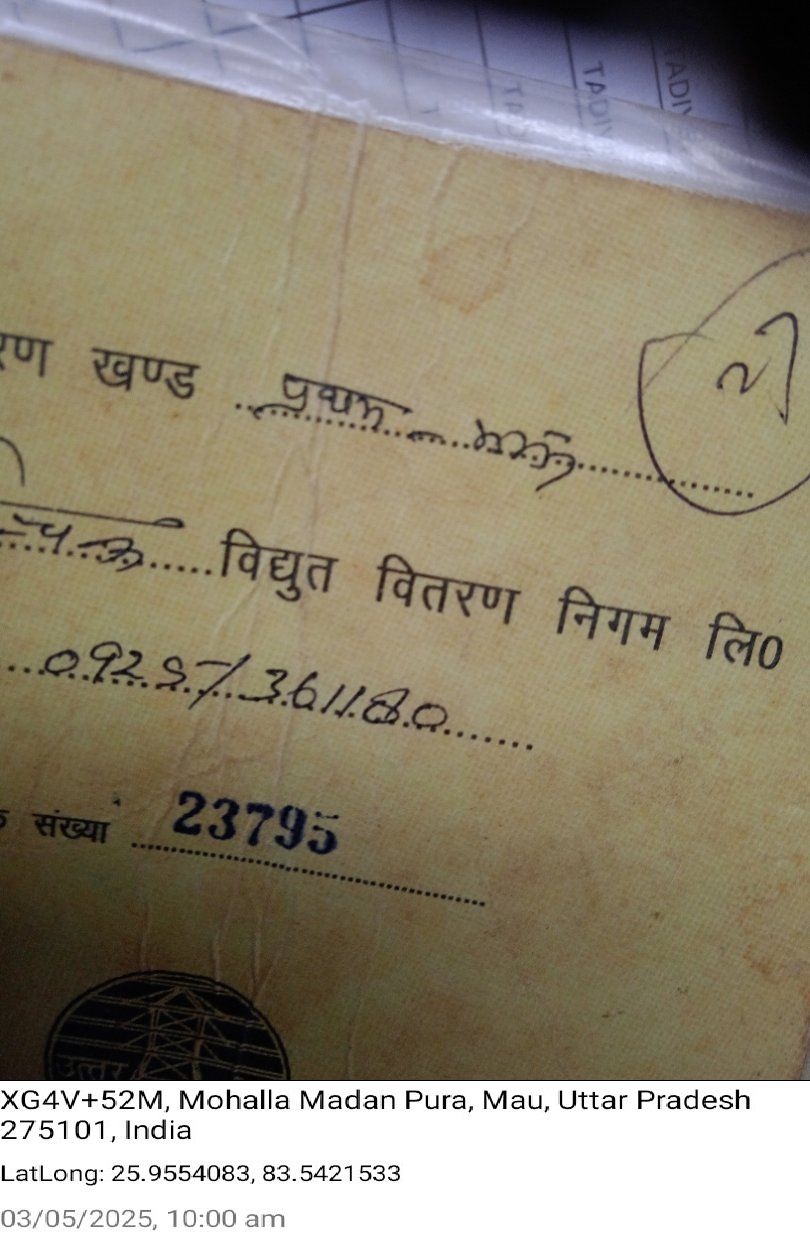 TADIV
TADIV
TA
खण्ड प्रथम मऊ
विद्युत वितरण निगम लि०
0925/361180
संख्या 23795
उत्तर
XG4V+52M, Mohalla Madan Pura, Mau, Uttar Pradesh
275101, India
LatLong: 25.9554083, 83.5421533
03/05/2025, 10:00 am